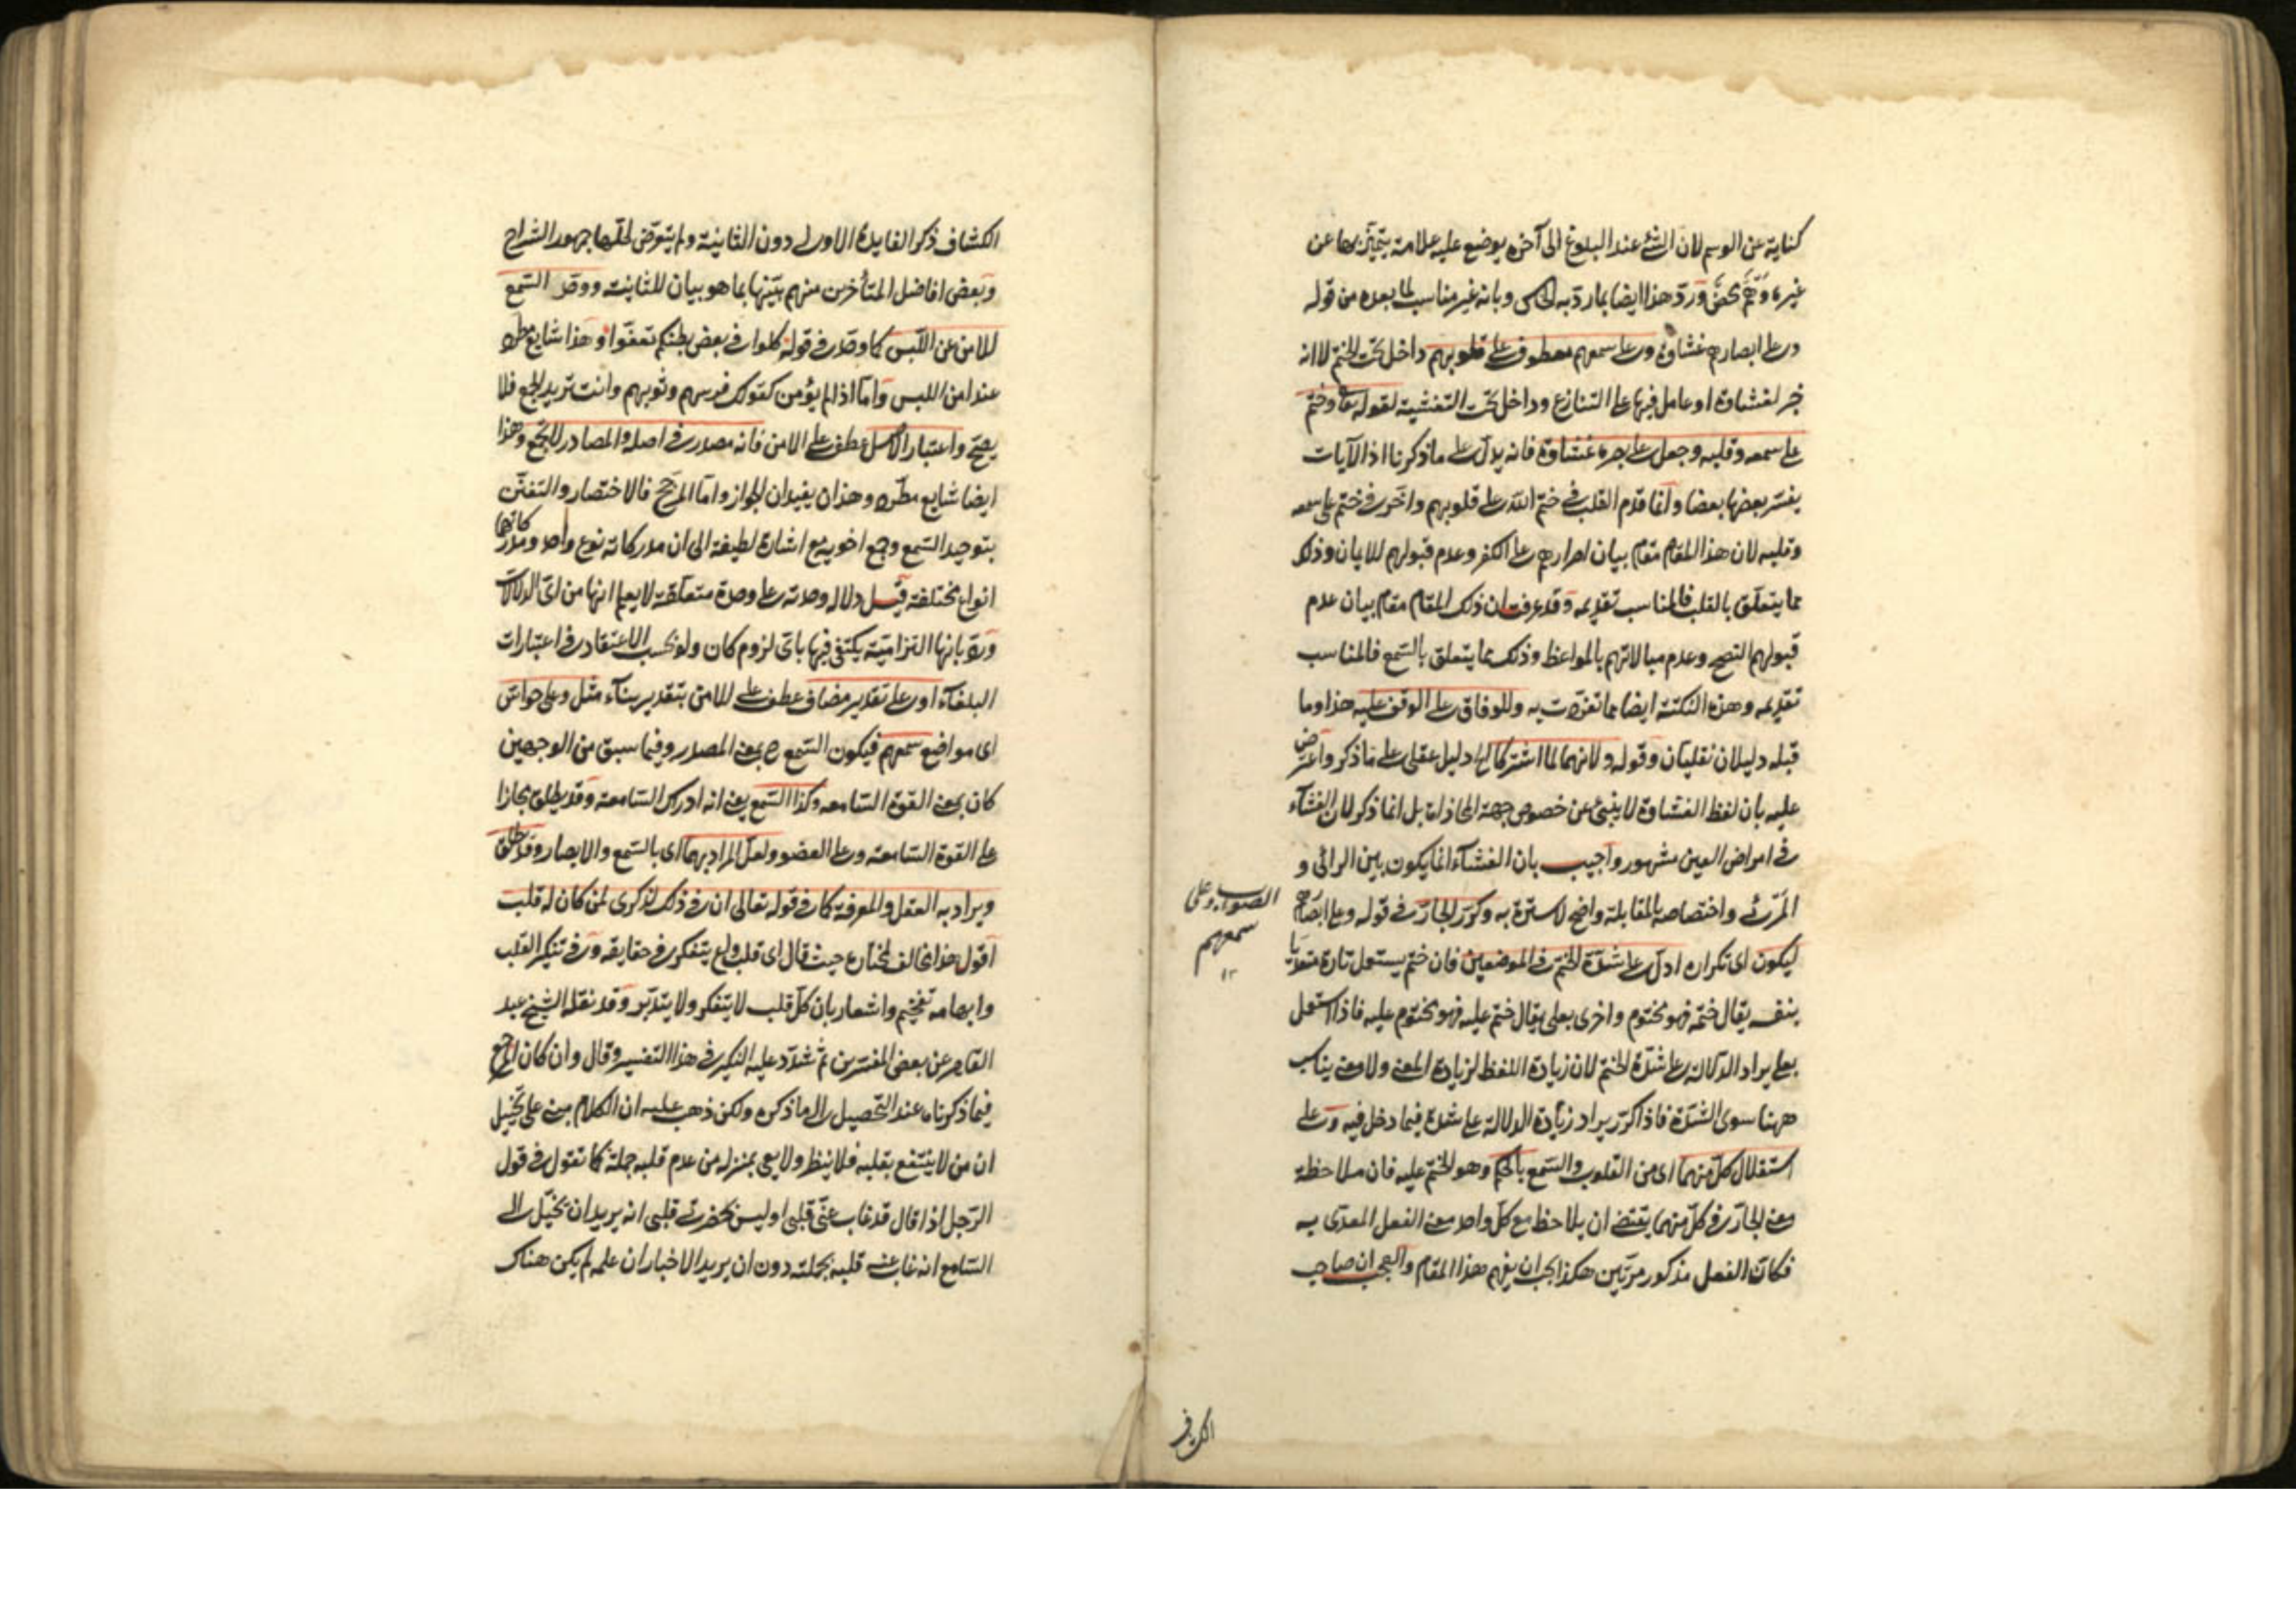 كناية عن الوسم لان الشئ عند البلوغ الى آخره يوضع عليه علامة يتميّز بها عن
غيره وهم محض ورد هذا ايضا بما رد به الحاكى وبانه غير مناسب لما بعده من قوله
وعلى ابصارهم غشاوة وعلى سمعهم معطوف على قلوبهم داخل تحت الختم لا انه
خبر لغشاوة او عامل فيها على التنازع وداخل تحت التغشية لقوله تعالى وختم
على سمعه وقلبه وجعل على بصره غشاوة فانه يدل على ما ذكرنا اذ الآيات
يفسر بعضها بعضا وانما قدم القلب في ختم الله على قلوبهم واخر في ختم على سمعه
وقلبه لان هذا المقام مقام بيان اصرارهم على الكفر وعدم قبولهم للايمان وذلك
مما يتعلق بالقلب فالمناسب تقديمه وقد عرفت ان ذلك المقام مقام بيان عدم
قبولهم النصح وعدم مبالاتهم بالمواعظ وذلك مما يتعلق بالسمع فالمناسب
تقديمه وهذه النكتة ايضا مما تفردت به وللوفاق على الوقف عليه هذا وما
قبله دليلان نقليان وقوله ولانهما لما اشتركا الخ دليل عقلى على ما ذكر واعترض
عليه بان لفظ الغشاوة لا ينبئ عن خصوص جهة المحاذاة بل انما ذكر لان الغشاء
في امراض العين مشهور واجيب بان الغشاء انما يكون بين الرائى و
المرئى واختصاصه بالمقابلة واضح لا سترة به وكرر الجار في قوله وعلى ابصارهم
ليكون اى تكراره ادل على شدة الختم في الموضعين فان ختم يستعمل تارة متعديا
بنفسه يقال ختمه فهو مختوم واخرى بعلى يقال ختم عليه فهو مختوم عليه فاذا استعمل
بعلى يراد الدلالة على شدة الختم لان زيادة اللفظ لزيادة المعنى ولا معنى يناسب
ههنا سوى الشدة فاذا كرر يراد زيادة الدلالة على شدة فيما دخل فيه وعلى
استقلال كل منهما اى من القلوب والسمع بالحكم وهو الختم عليه فان ملاحظة
معنى الجار في كل منهما يقتضى ان يلاحظ مع كل واحد معنى الفعل المعدى به
فكان الفعل مذكور مرتين هكذا يجب ان يفهم هذا المقام والعجب ان صاحب
الصواب وعلى
سمعهم
١٢
الكشاف ذكر الفايدة الاولى دون الثانية ولم يتعرض لحلها جمهور الشراح
وبعض افاضل المتأخرين منهم بينها بما هو بيان للثانية ووحد السمع
للامن عن اللبس كما وحد في قوله كلوا في بعض بطنكم تعفوا وهذا شايع مطرد
عند امن اللبس واما اذا لم يؤمن كقولك فرسهم وثوبهم وانت تريد الجمع فلا
يصح واعتبار الاصل عطف على الامن فانه مصدر في اصله والمصادر لا تجمع وهذا
ايضا شايع مطرد وهذان يفيدان الجواز واما المرجح فالاختصار والتفنن
بتوحيد السمع وجمع اخويه مع اشارة لطيفة الى ان مدركاته نوع واحد ومدركاتهما
انواع مختلفة قيل دلالة وحدته على وحدة متعلقه لا يعلم انها من اى الدلالات
ورد بانها التزامية يكتفى فيها باى لزوم كان ولو بحسب الاعتقاد في اعتبارات
البلغاء او على تقدير مضاف عطف على للامن بتقدير بناء مثل وعلى حواس
اى مواضع سمعهم فيكون السمع ح بمعنى المصدر وفيما سبق من الوجهين
كان بمعنى القوة السامعه وكذا السمع يعنى انه ادراك السامعة وقد يطلق مجازا
على القوة السامعة وعلى العضو ولعل المراد بهما اى بالسمع والابصار وقد يطلق
ويراد به العقل والمعرفة كما في قوله تعالى ان في ذلك لذكرى لمن كان له قلب
اقول هذا مخالف لمختاره حيث قال اى قلب واع يتفكر في حقايقه وفي تنكير القلب
وابهامه تفخيم واشعار بان كل قلب لا يتفكر ولا يتدبر وقد نقله الشيخ عبد
القاهر عن بعض المفسرين ثم شدد عليه النكير في هذا التفسير وقال وان كان المرجع
فيما ذكرناه عند التحصيل الى ما ذكره ولكن ذهب عليه ان الكلام مبنى على تخييل
ان من لا ينتفع بقلبه فلا ينظر ولا يعى بمنزلة من عدم قلبه جملة كما تقول في قول
الرجل اذا قال قد غاب عنى قلبى او ليس يحضرنى قلبى انه يريد ان يخيل الى
السامع انه غاب عنه قلبه بجملته دون ان يريد الاخبار ان علمه لم يكن هناك